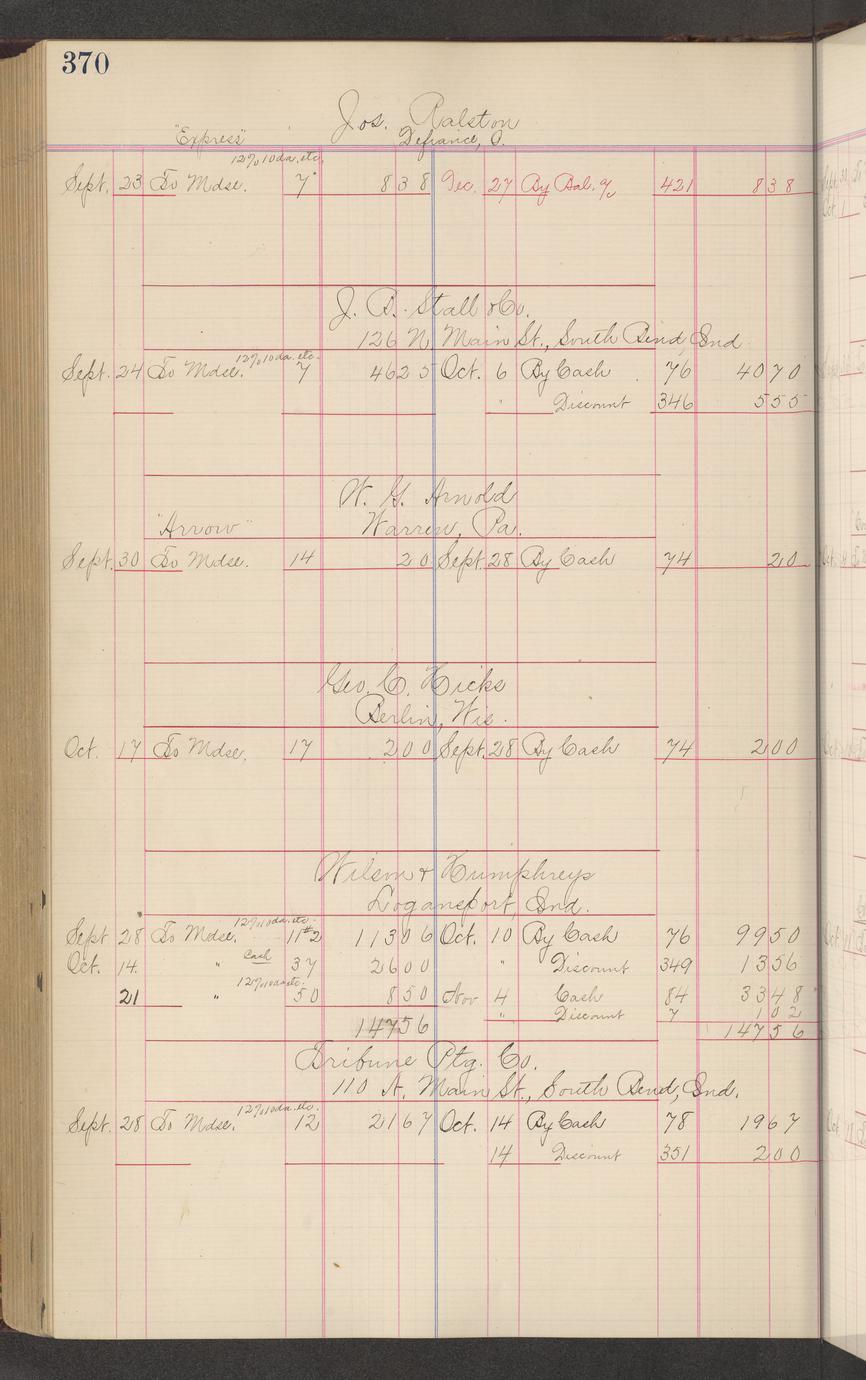 370
Jos. Ralston
"Express" Defiance, O.
12% 10 da. etc.
Sept. 23 To Mdse. 7 8 38 Dec. 27 By Bal. a/c 421 8 38
J. B. Stall & Co.
126 N. Main St., South Bend, Ind.
12% 10 da. etc.
Sept. 24 To Mdse. 7 46 25 Oct. 6 By Cash 76 40 70
" Discount 346 5 55
W. G. Arnold
"Arrow" Warren, Pa.
Sept. 30 To Mdse. 14 20 Sept. 28 By Cash 74 20
Geo. C. Hicks
Berlin, Wis.
Oct. 17 To Mdse. 17 2 00 Sept. 28 By Cash 74 2 00
Wilson & Humphreys
Logansport, Ind.
12% 10 da. etc.
Sept 28 To Mdse. 11#2 113 06 Oct. 10 By Cash 76 99 50
Oct. 14 " Cash 37 26 00 " Discount 349 13 56
21 " 12% 10 da etc. 50 8 50 Nov 4 Cash 84 33 48
" Discount 7 1 02
147 56 147 56
Tribune Ptg. Co.
110 N. Main St., South Bend, Ind.
12% 10 da. etc.
Sept. 28 To Mdse. 12 21 67 Oct. 14 By Cash 78 19 67
14 Discount 351 2 00